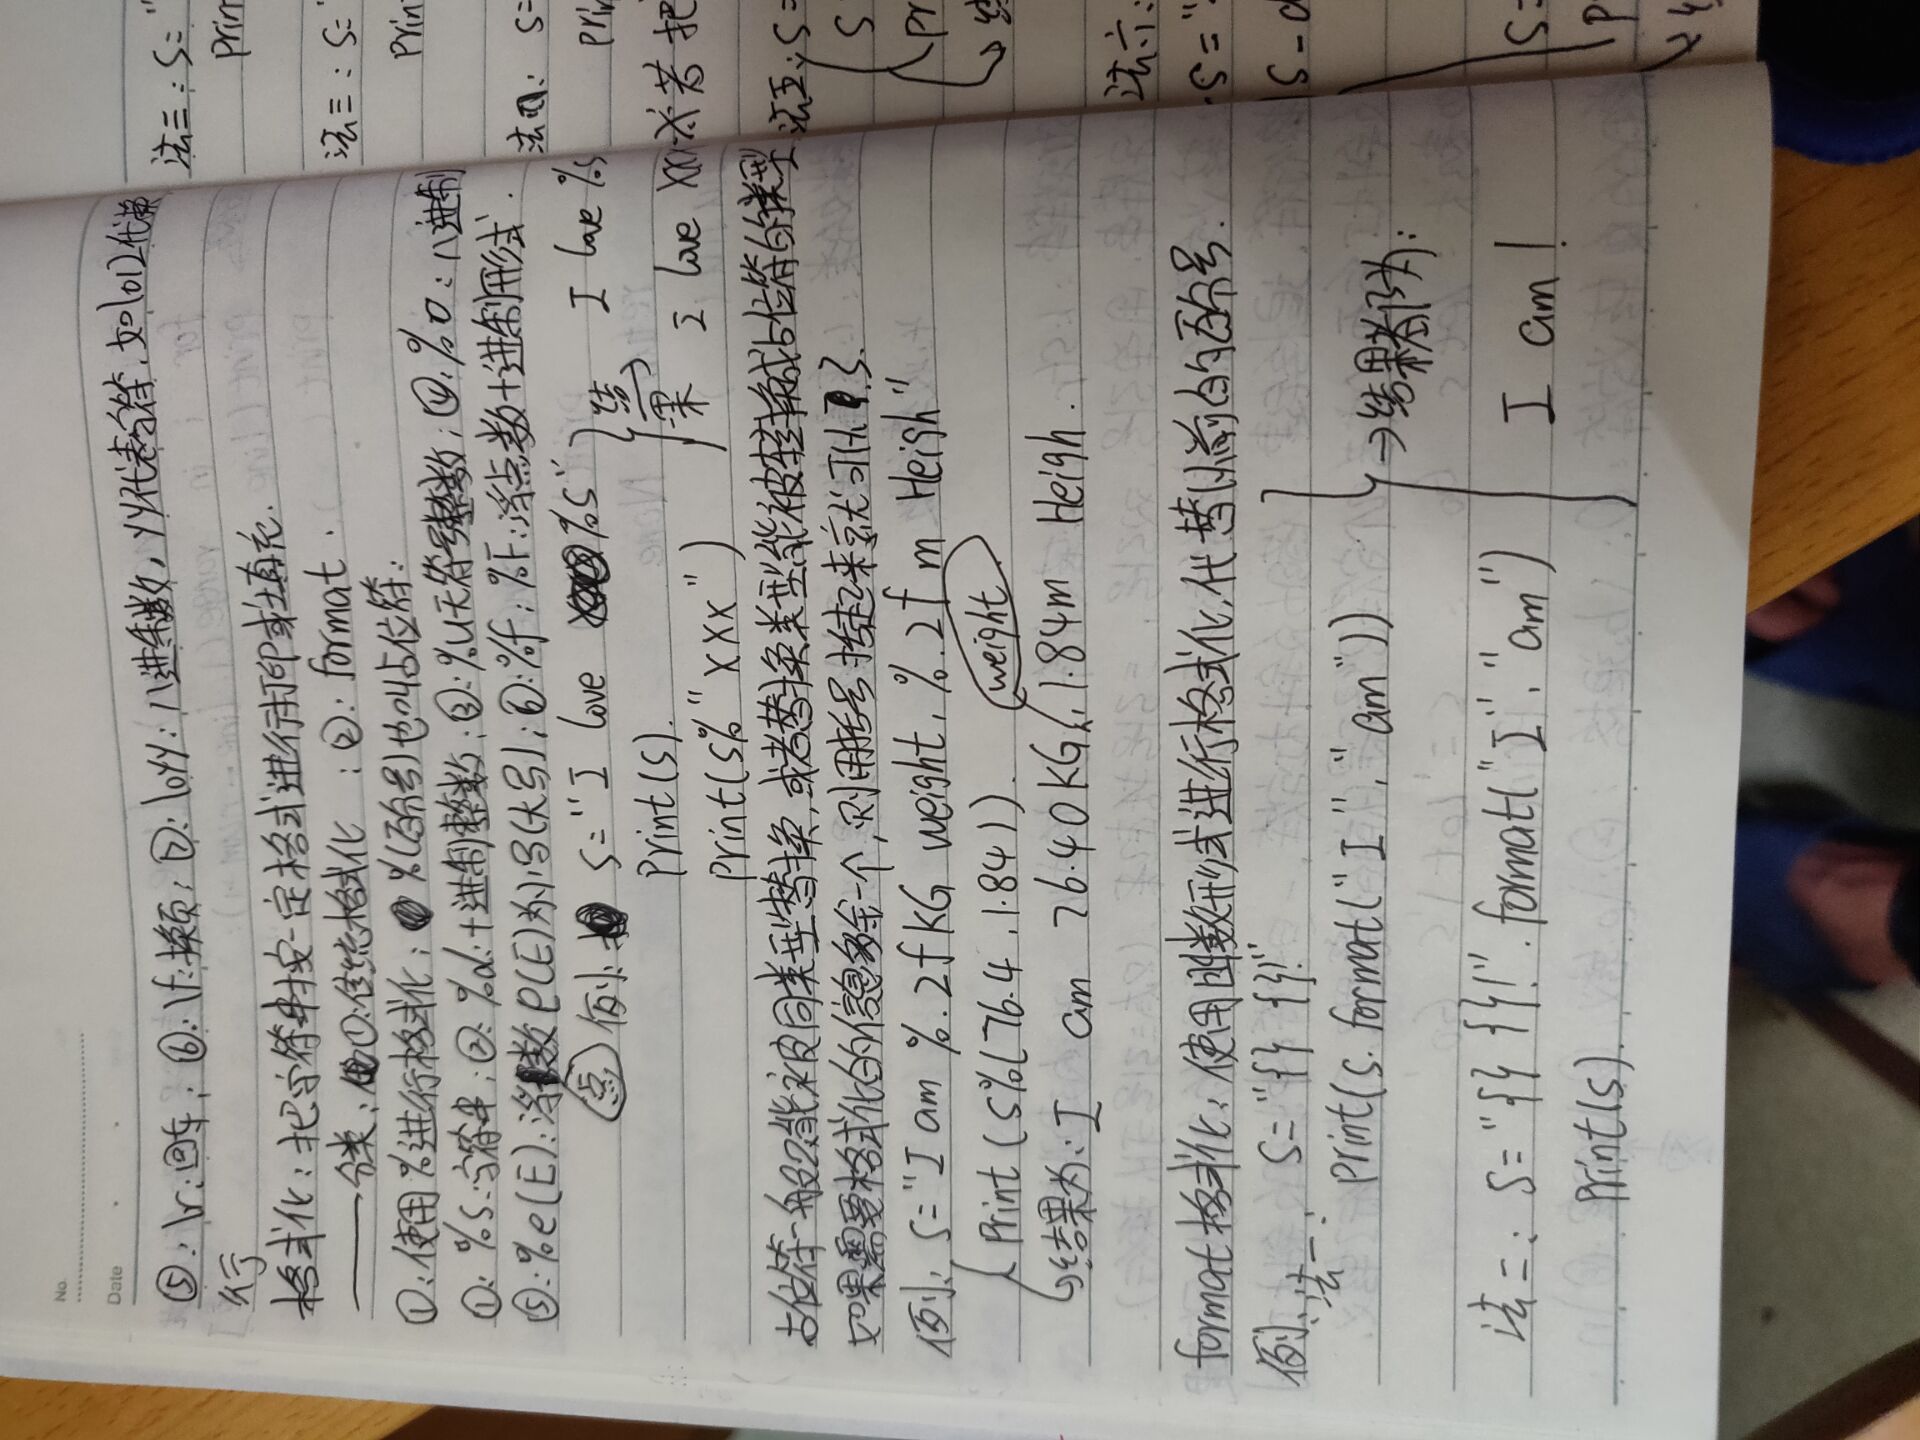 No.
Date
⑤:\r:回车;⑥:\f:换页;⑦:\oyy:八进制数,yy代表字符,如\o12代表
换行
格式化:把字符串按一定格式进行打印或士填充.
分类:①:传统格式化;②:format.
①:使用%进行格式化:%(百分号)也叫占位符.
①:%s:字符串;②:%d:十进制整数;③:%u无符号整数;④:%o:八进制
⑤:%e(E):浮点数e(E)为小写(大写);⑥:%f:浮点数十进制形式.
例:s="I love %s" 结果 I love %s
print(s).
print(s%"xxx") I love xxx
占位符一般只能被同类型替换,或者替换类型能被转换成占位符的类型
如果需要格式化的信息多余一个,则用括号括起来就可以了.
例:s="I am %.2fKG weight,%.2f m Heigh"
print(s%(76.4,1.84)). weight
结果为:I am 76.40KG,1.84m Heigh.
format格式化:使用函数形式进行格式化,代替以前的百分号.
例:法一: s="{} {}!"
print(s.format("I","am")) →结果都为:
法二:s="{} {}!".format("I","am") I am!
print(s).
法三:s="
prin
法三:s="
prin
法四:s=
prin
若把
法五:s=
s
pr
法六:
s="
s=
p